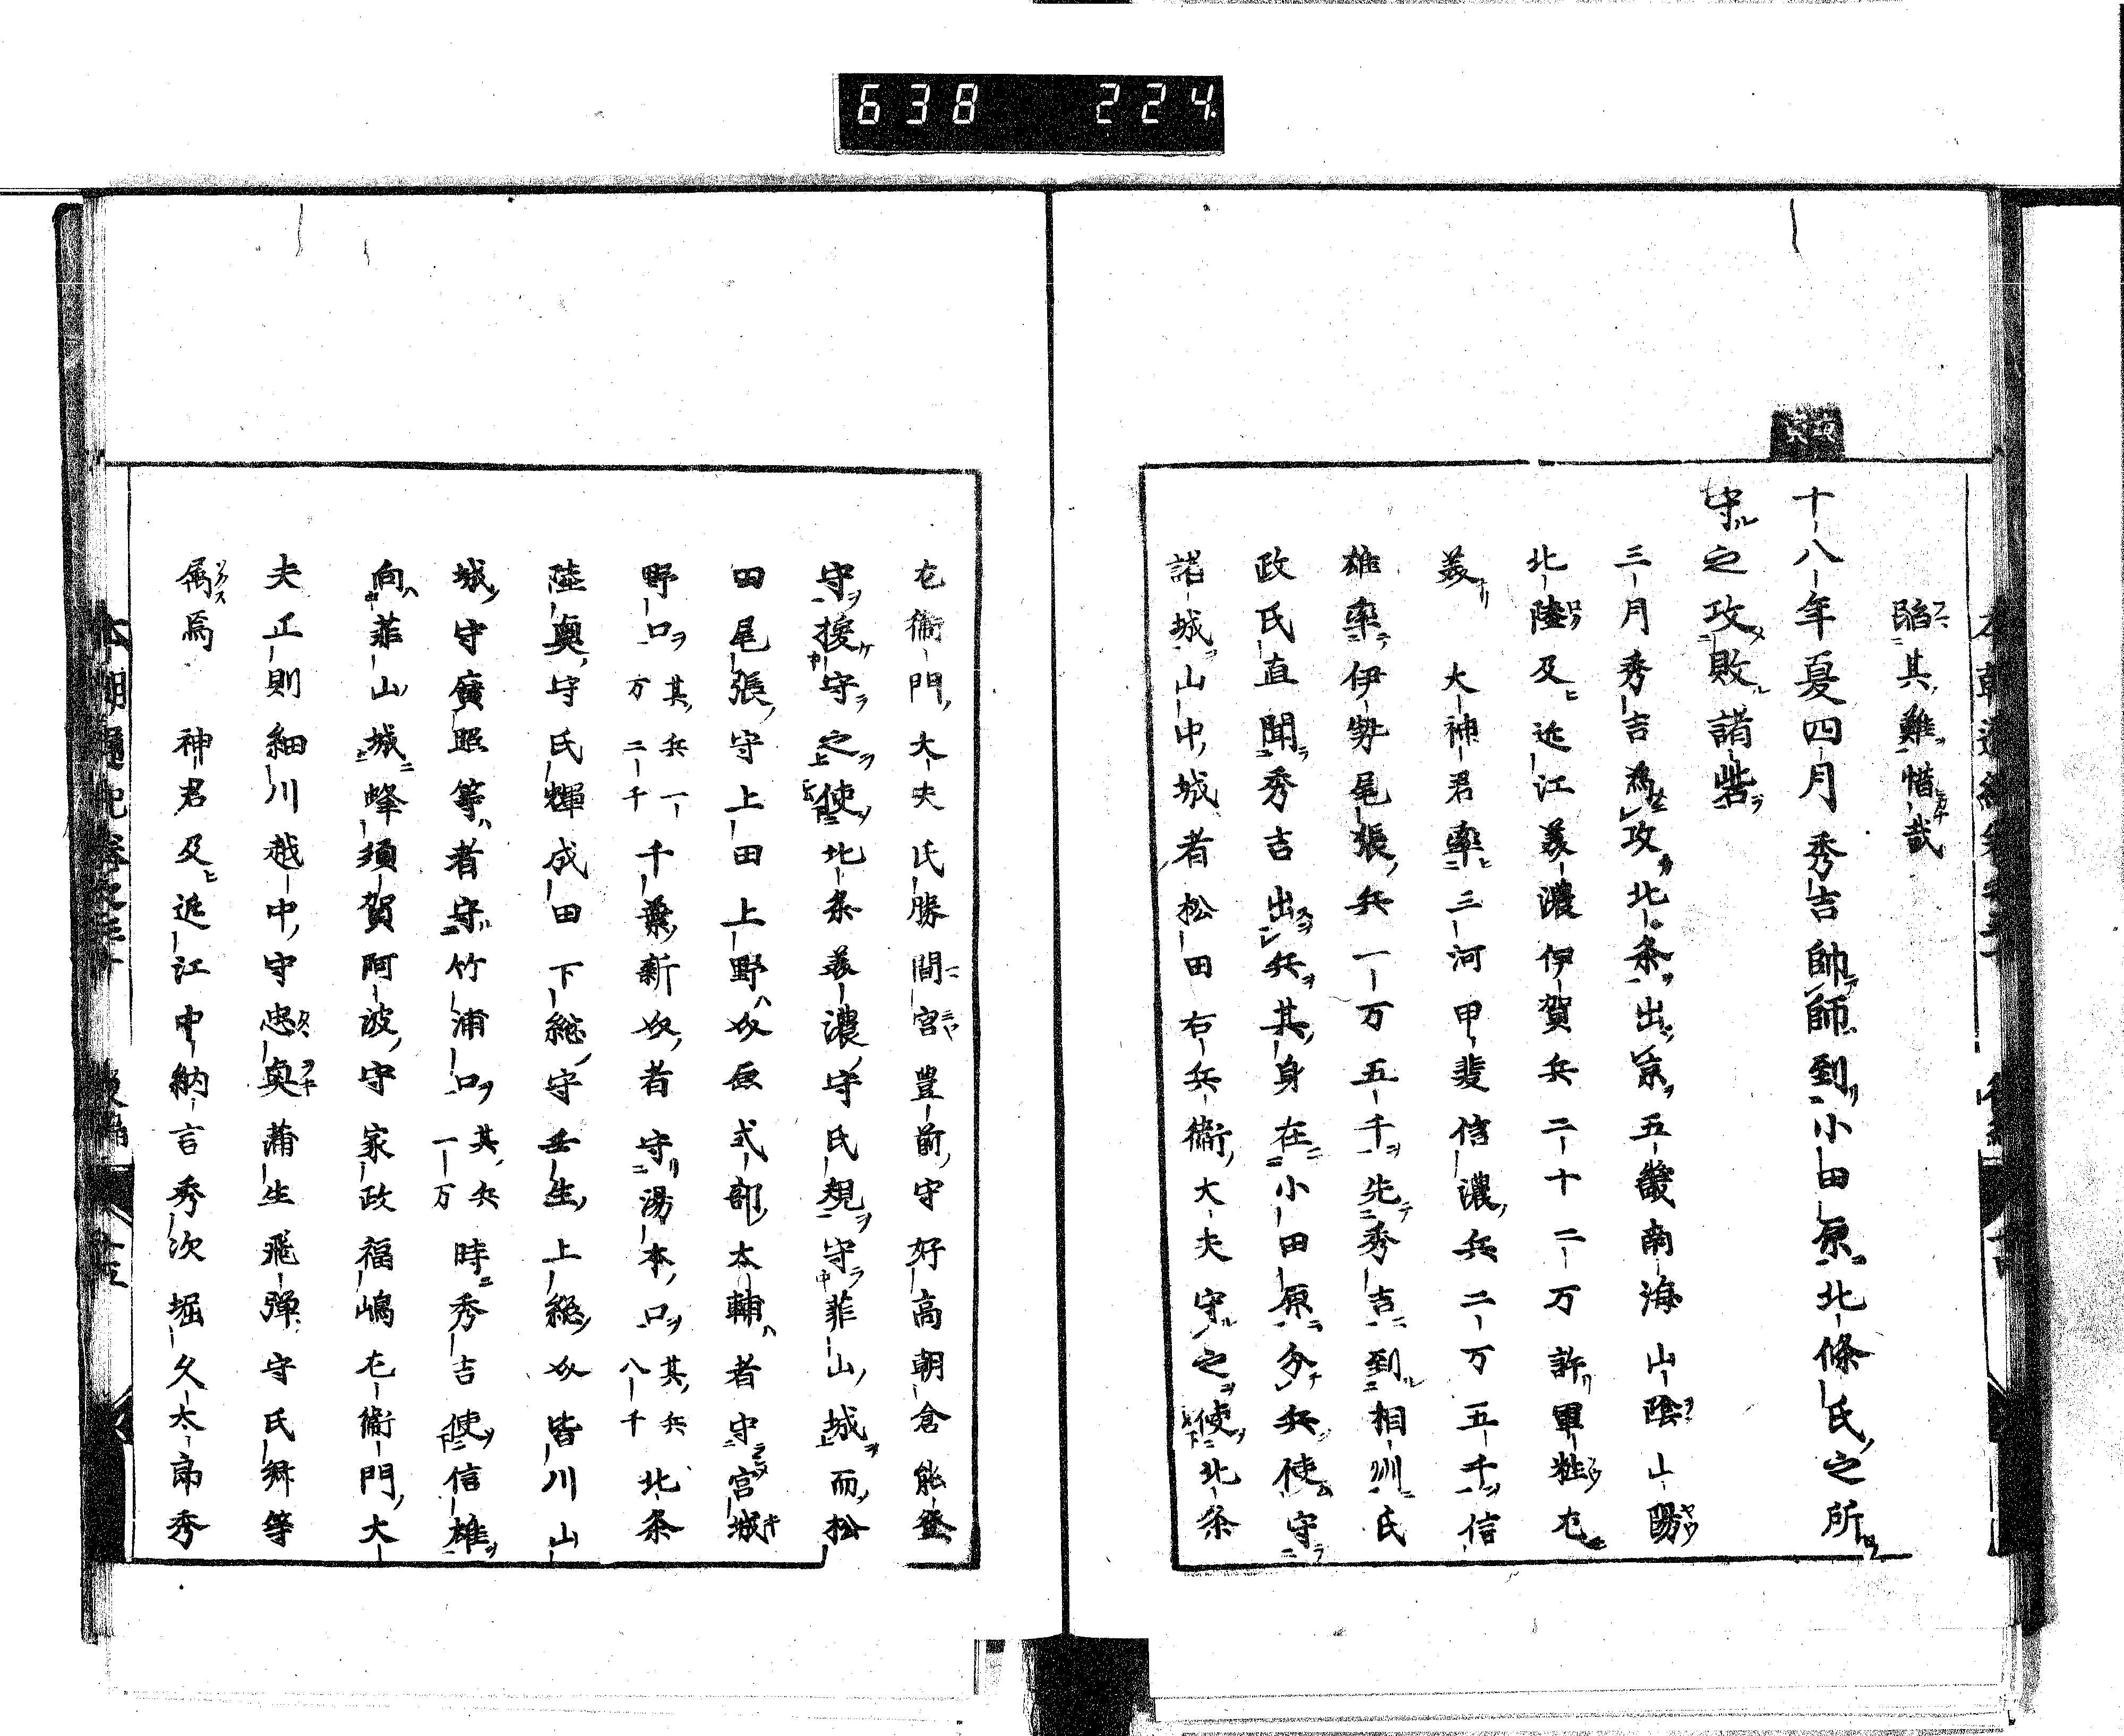 638 224
陷其難惜哉
十八年夏四月秀吉帥師到小田原北條氏之所
守之攻敗諸砦
三月秀吉為攻北条出京五畿南海山陰山陽
北陸及近江美濃伊賀兵二十二万許軍粧尤
美 大神君率三河甲斐信濃兵二万五千信
雄率伊勢尾張兵一万五千先秀吉到相州氏
政氏直聞秀吉出兵其身在小田原分兵使守
諸城山中城者松田右兵衛大夫守之使北条
左衛門大夫氏勝間宮豊前守好高朝倉能登
守援守之使北条美濃守氏規守韮山城而松
田尾張守上田上野々原式部太輔者守宮城
野口其兵一万二千千葉新々者守湯本口其兵八千北条
陸奥守氏輝成田下総守壬生上総々皆川山
城守廣照等者守竹浦口其兵一万時秀吉使信雄
向韮山城蜂須賀阿波守家政福嶋左衛門大
夫正則細川越中守忠奥蒲生飛弾守氏郷等
属焉 神君及近江中納言秀次堀久太郎秀